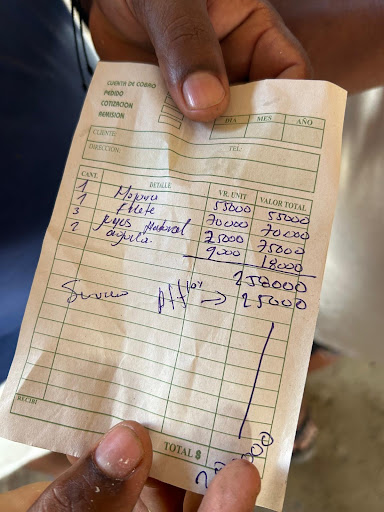 CUENTA DE COBRO
PEDIDO
COTIZACION
REMISION
DIA MES AÑO
CLIENTE:
DIRECCION: TEL:
CANT. DETALLE VR. UNIT VALOR TOTAL
1 55000 55000
1 Filete 70000 70000
3 Jugos Natural 25000 75000
2 aguila 9000 18000
258000
→ 25000
RECIBI
TOTAL $